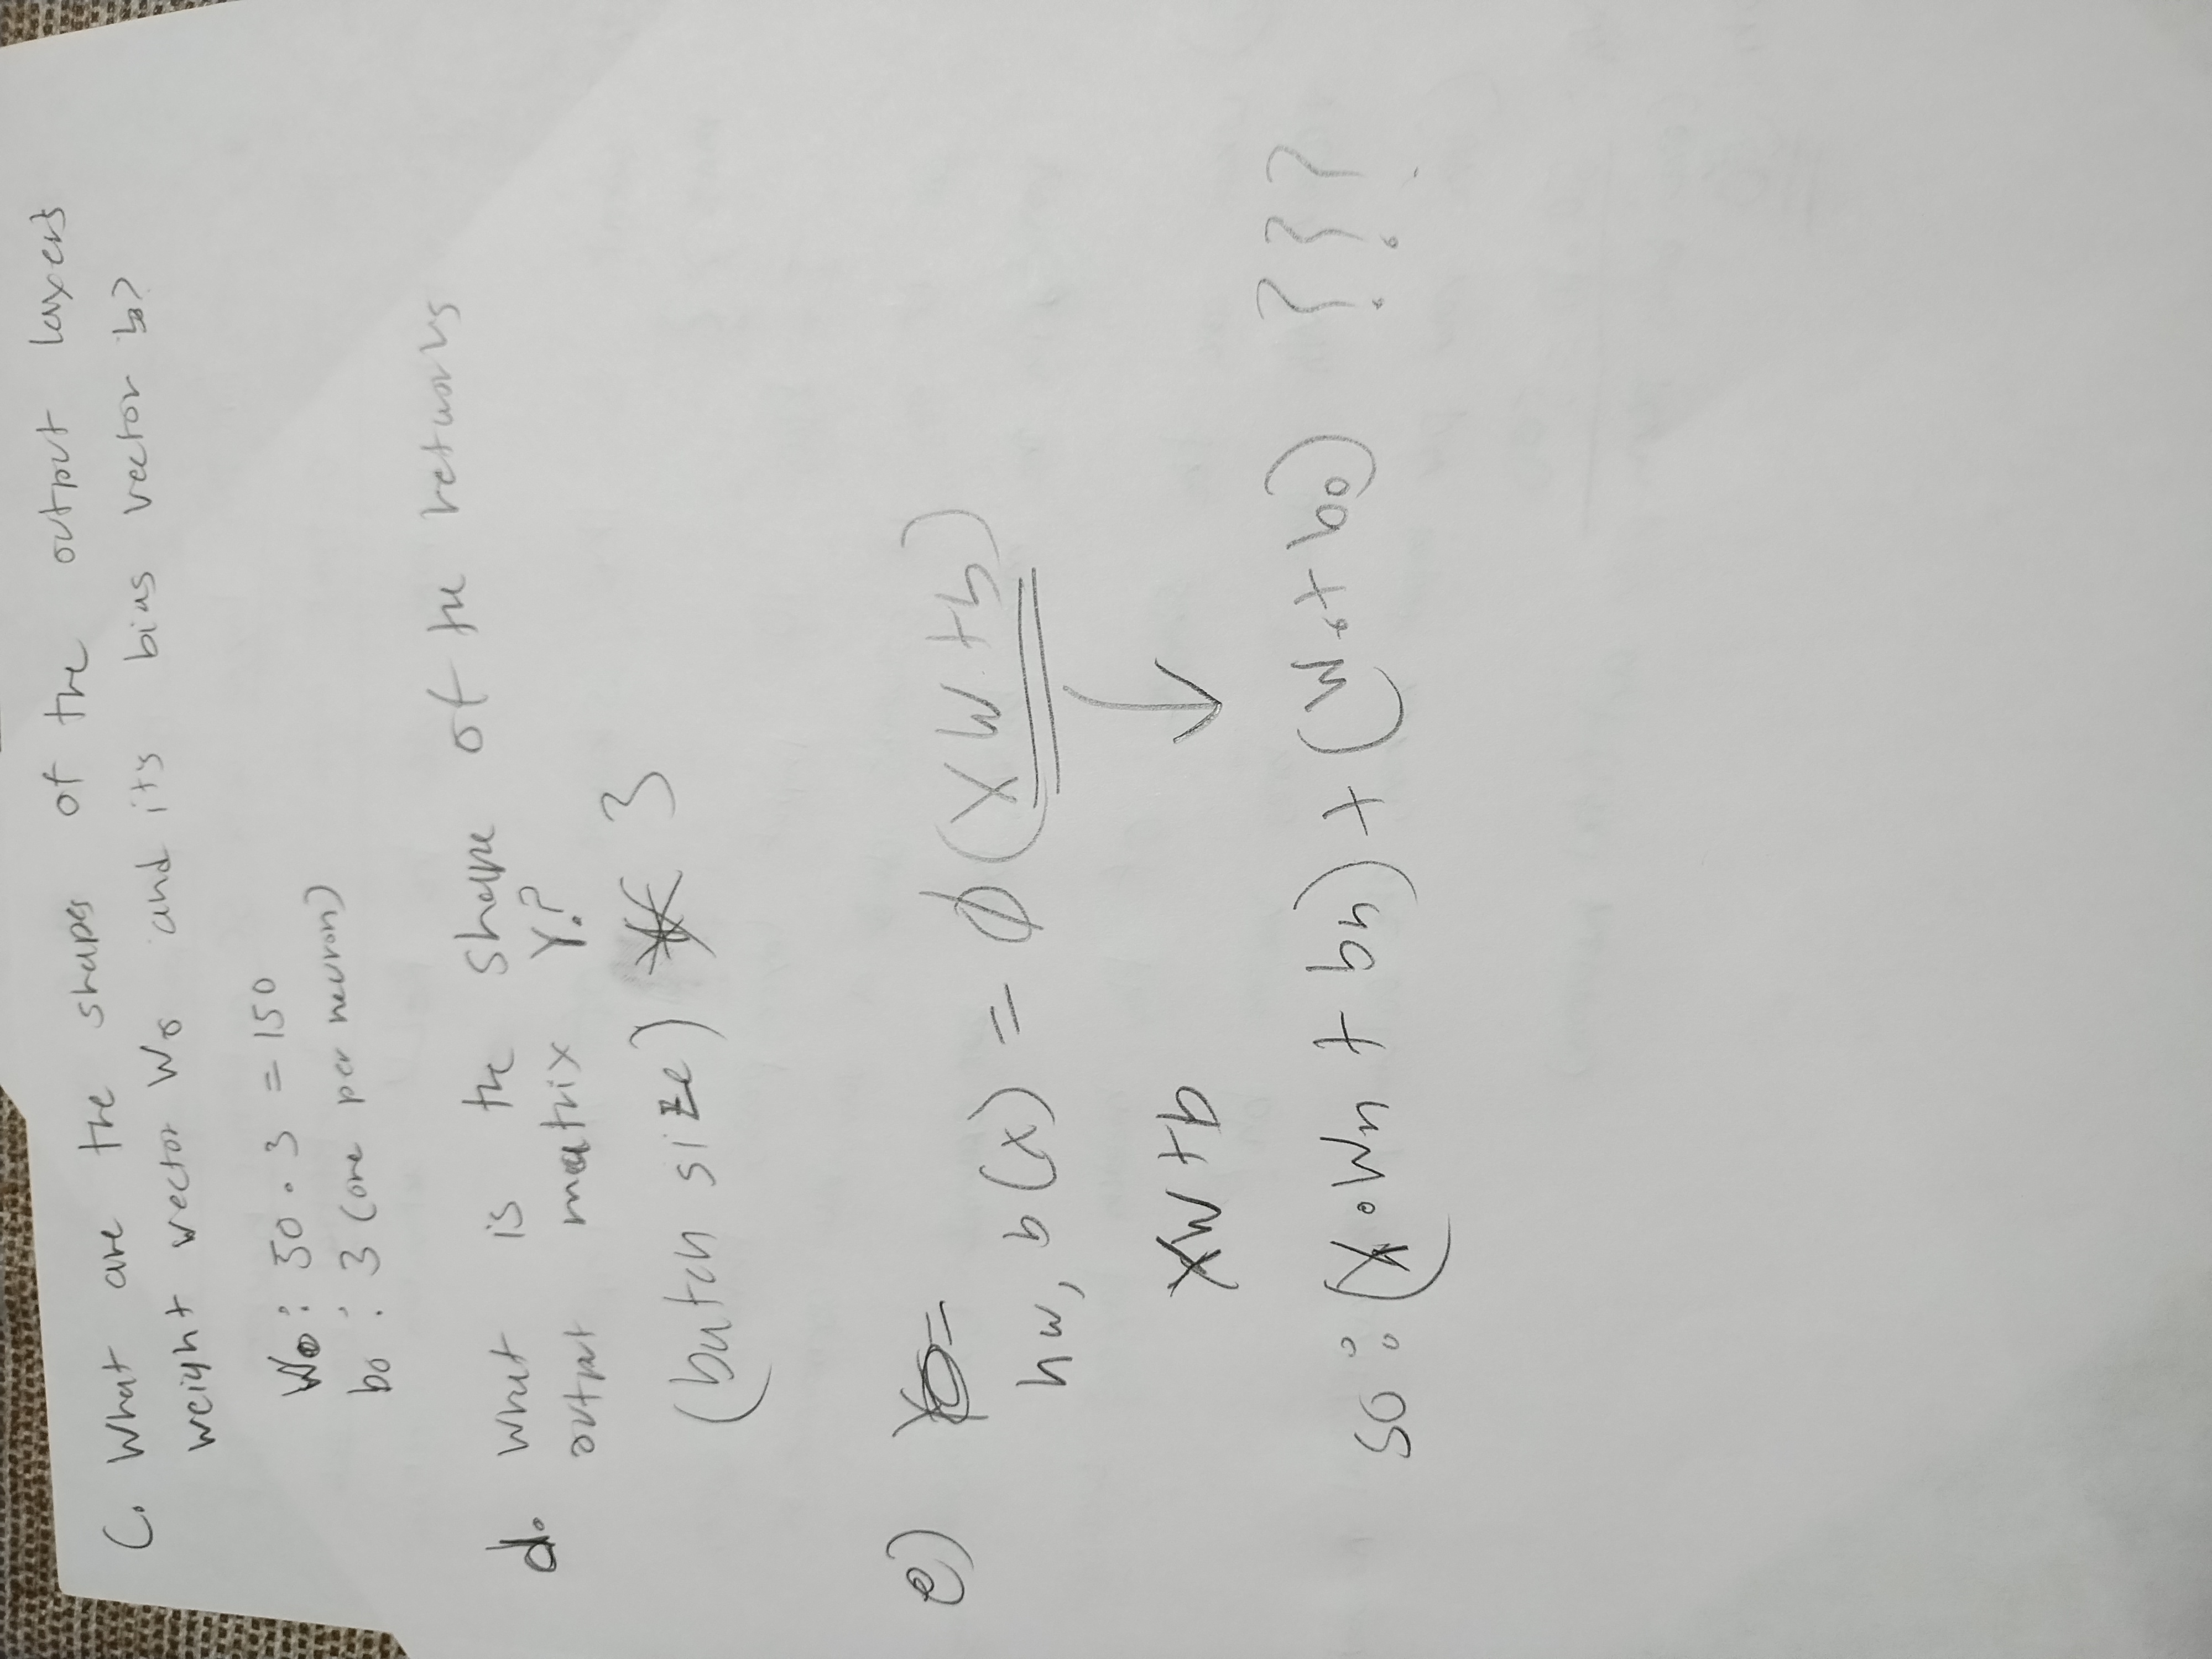 C. What are the shapes of the output layer's
weight vector Wo and its bias vector bo?
Wo: 50 · 3 = 150
bo : 3 (one per neuron)
d. What is the shape of the networks
output matrix Y?
(batch size) × 3
e)
hw, b(x) = ϕ(XW+b)
XW+b
so: (X·Wh + bh) + (Wo+ bo) ???